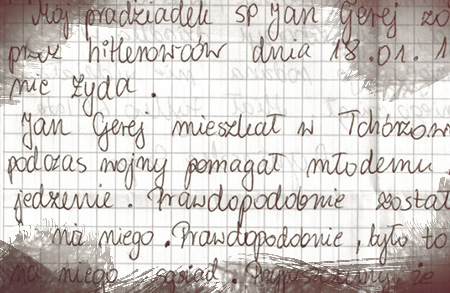 Mój pradziadek śp Jan Gerej zo
przez hitlerowców dnia 18.01.1
nie Żyda.
Jan Gerej mieszkał w Tchórzow
podczas wojny pomagał młodemu
jedzenie. Prawdopodobnie został
na niego. Prawdopodobnie, było to
na niego sąsiad. Przypuszczamy, że